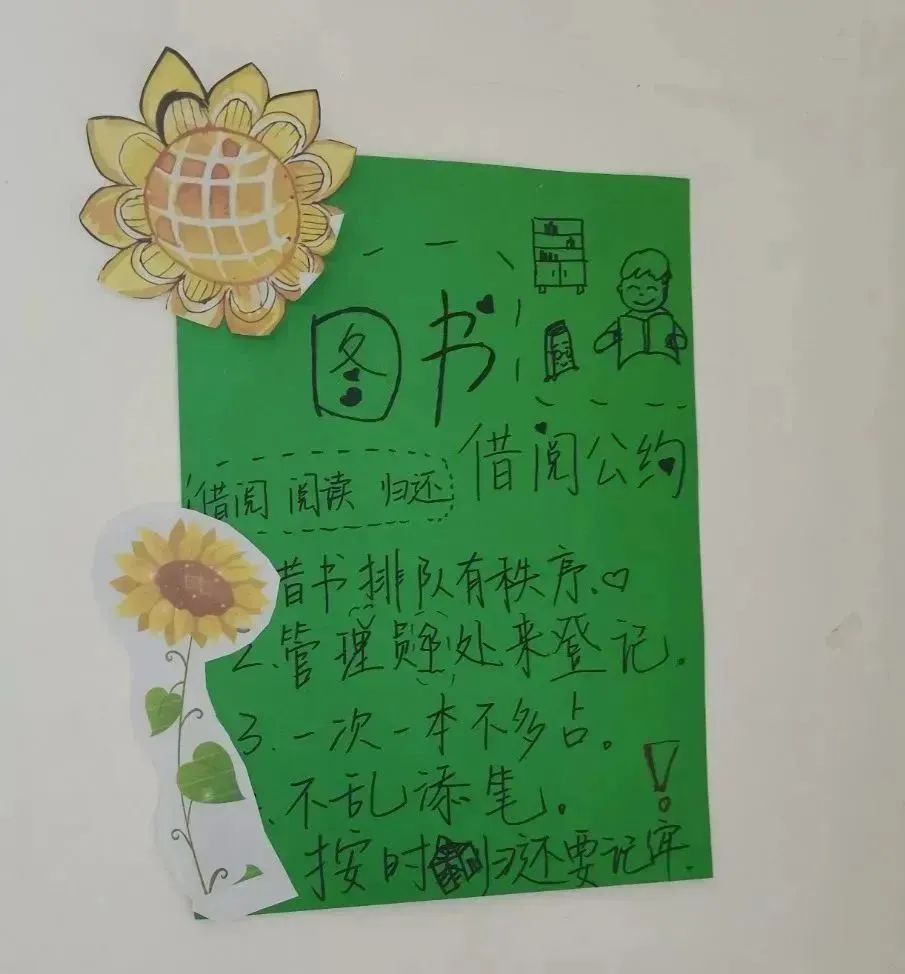 图书
借阅公约
借阅 阅读 归还
借书排队有秩序.
2.管理员处来登记.
3.一次一本不多占。
不乱添笔。
按时归还要记牢.
!